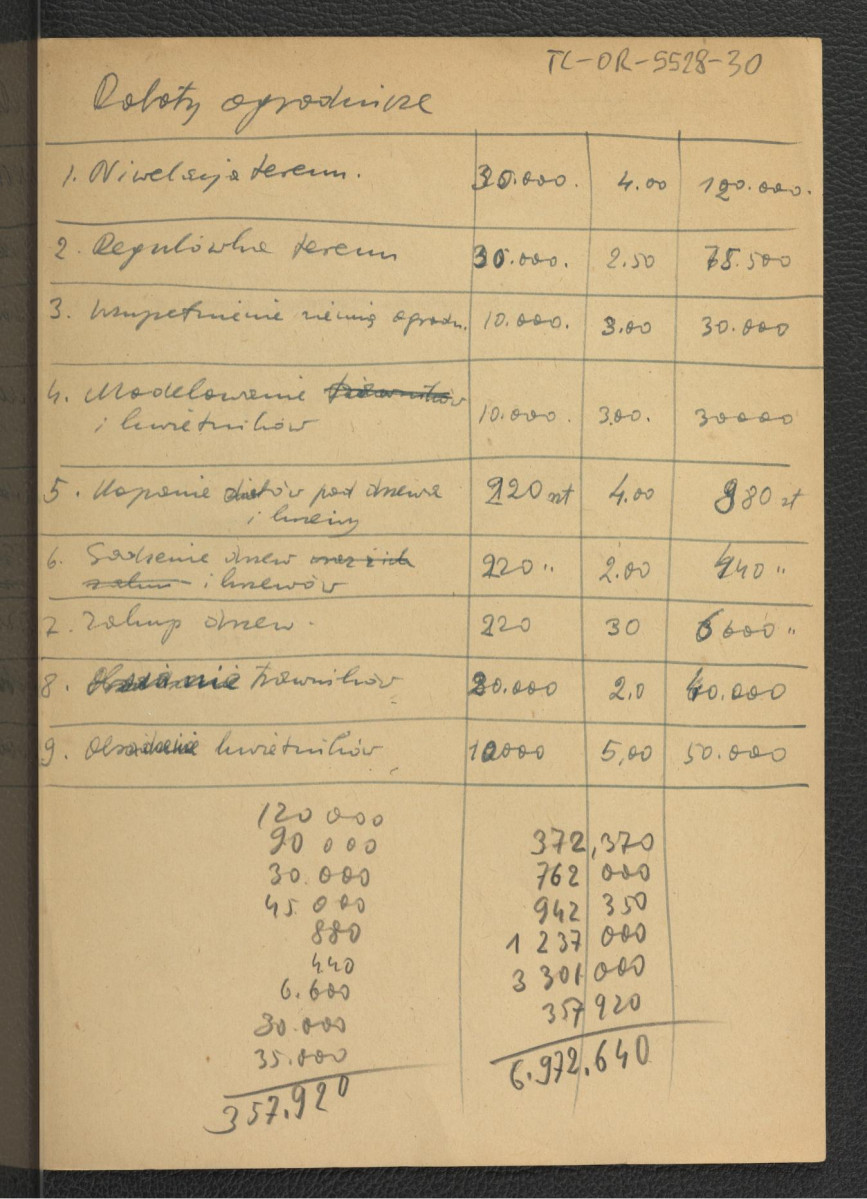 TL-OR-5528-30
Roboty ogrodnicze
1. Niwelacja terenu. 30.000. 4.00 120.000.
2. Regulówka terenu 30.000. 2.50 75.500
3. Uzupełnienie ziemią ogrodn. 10.000. 3.00 30.000
4. Modelowanie trawników
i kwietników 10.000. 3.00. 30000
5. Kopanie dołów pod drzewa 220 szt 4.00 880 zł
i krzewy
6. Sadzenie drzew oraz ich 220 " 2.00 440 "
i krzewów
7. Zakup drzew. 220 30 6600 "
8. trawników 20.000 2,0 40.000
9. Obsadzenie kwietników 10000 5,00 50.000
120 000
90 000
30.000
45 000
880
440
6.600
30.000
35.000
357.920
372,370
762 000
942 350
1 237 000
3 301 000
357 920
6.972.640